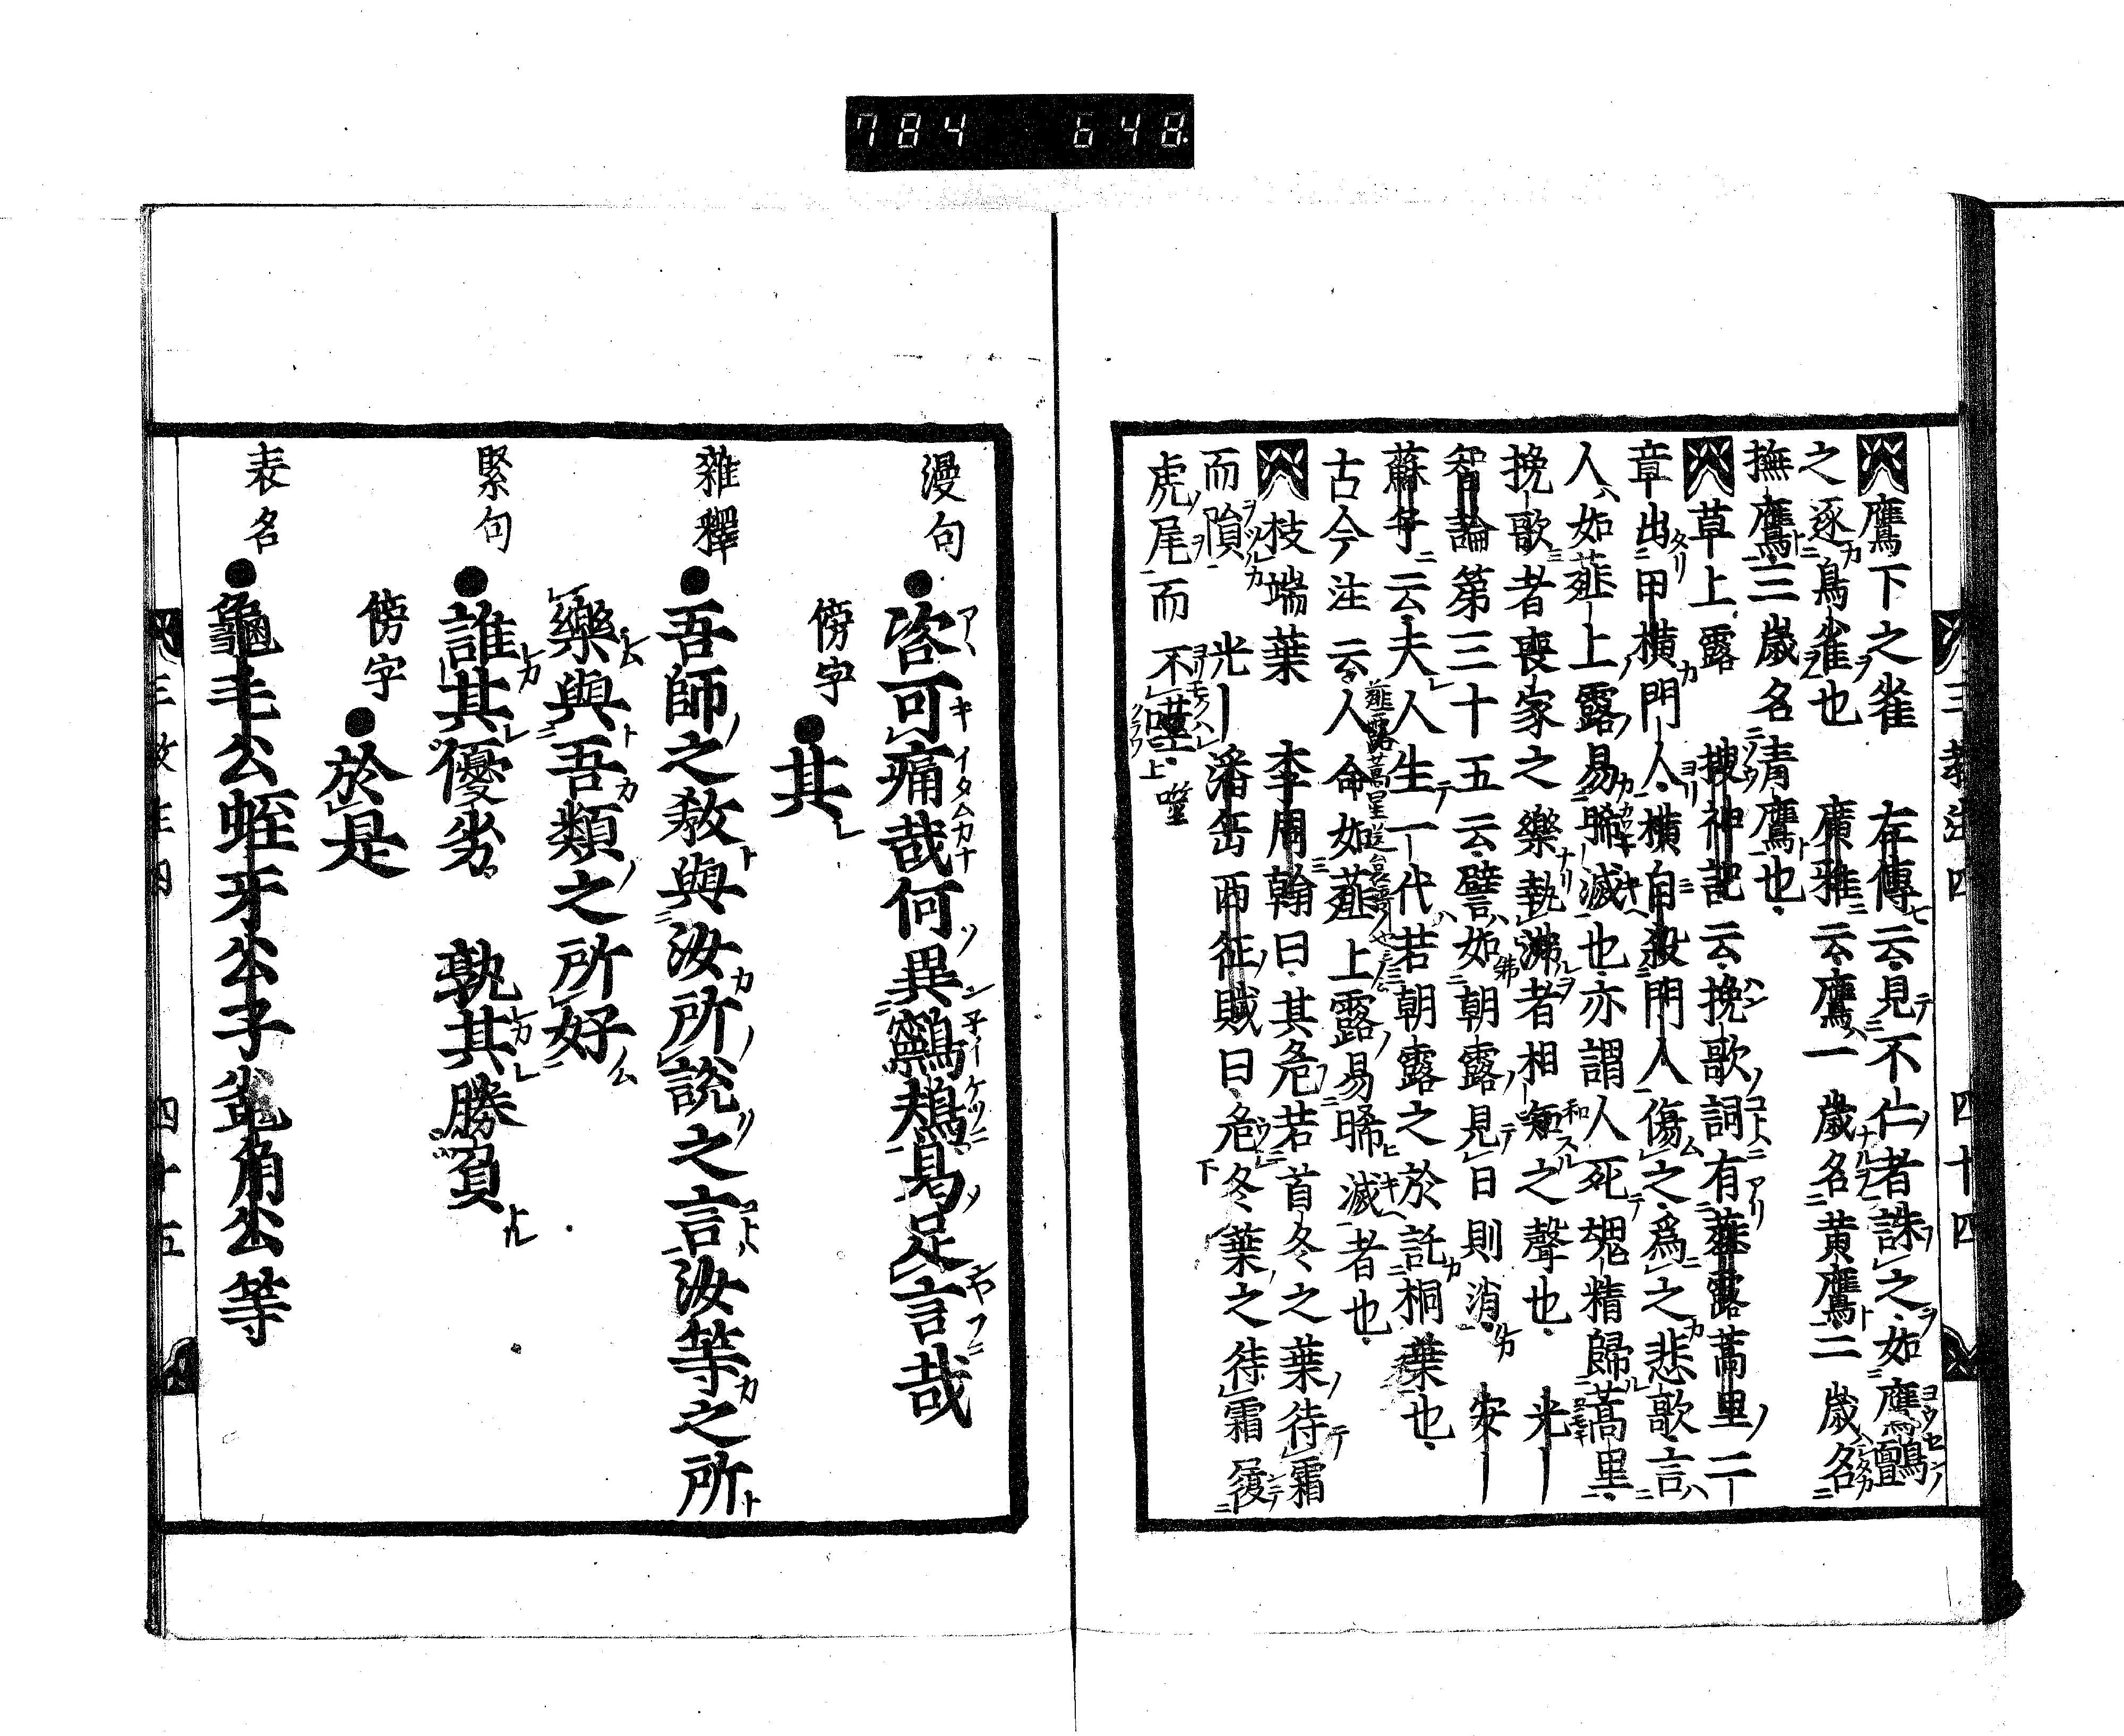 784 648
三教注四 四十四
鷹下之雀 左傳云見不仁者誅之如鷹鸇
之逐鳥雀也 廣雅云鷹一歲名黃鷹二歲名
撫鷹三歲名青鷹也
草上露 搜神記云挽歌詞有薤露蒿里二
章出田横門人横自殺門人傷之爲之悲歌言
人如薤上露易晞滅也亦謂人死魂精歸蒿里
挽歌者喪家之樂執紼者相和之聲也 光
智論第三十五云譬如朝露見日則消 安
蘇子云夫人生一代若朝露之於託桐葉也
古今注云人命如薤上露易晞滅者也
枝端葉 李周翰曰其危若首冬之葉待霜
而隕 光 潘岳西征賦曰危冬葉之待霜履
虎尾而不噬 噬
漫句 咨可痛哉何異鷦鷯曷足言哉
傍字 其
雜釋 吾師之教與汝所說之言汝等之所
樂與吾類之所好
緊句 誰其優劣 孰其勝負
傍字 於是
表名 龜毛公蛭牙公子兎角公等
三教注四 四十五